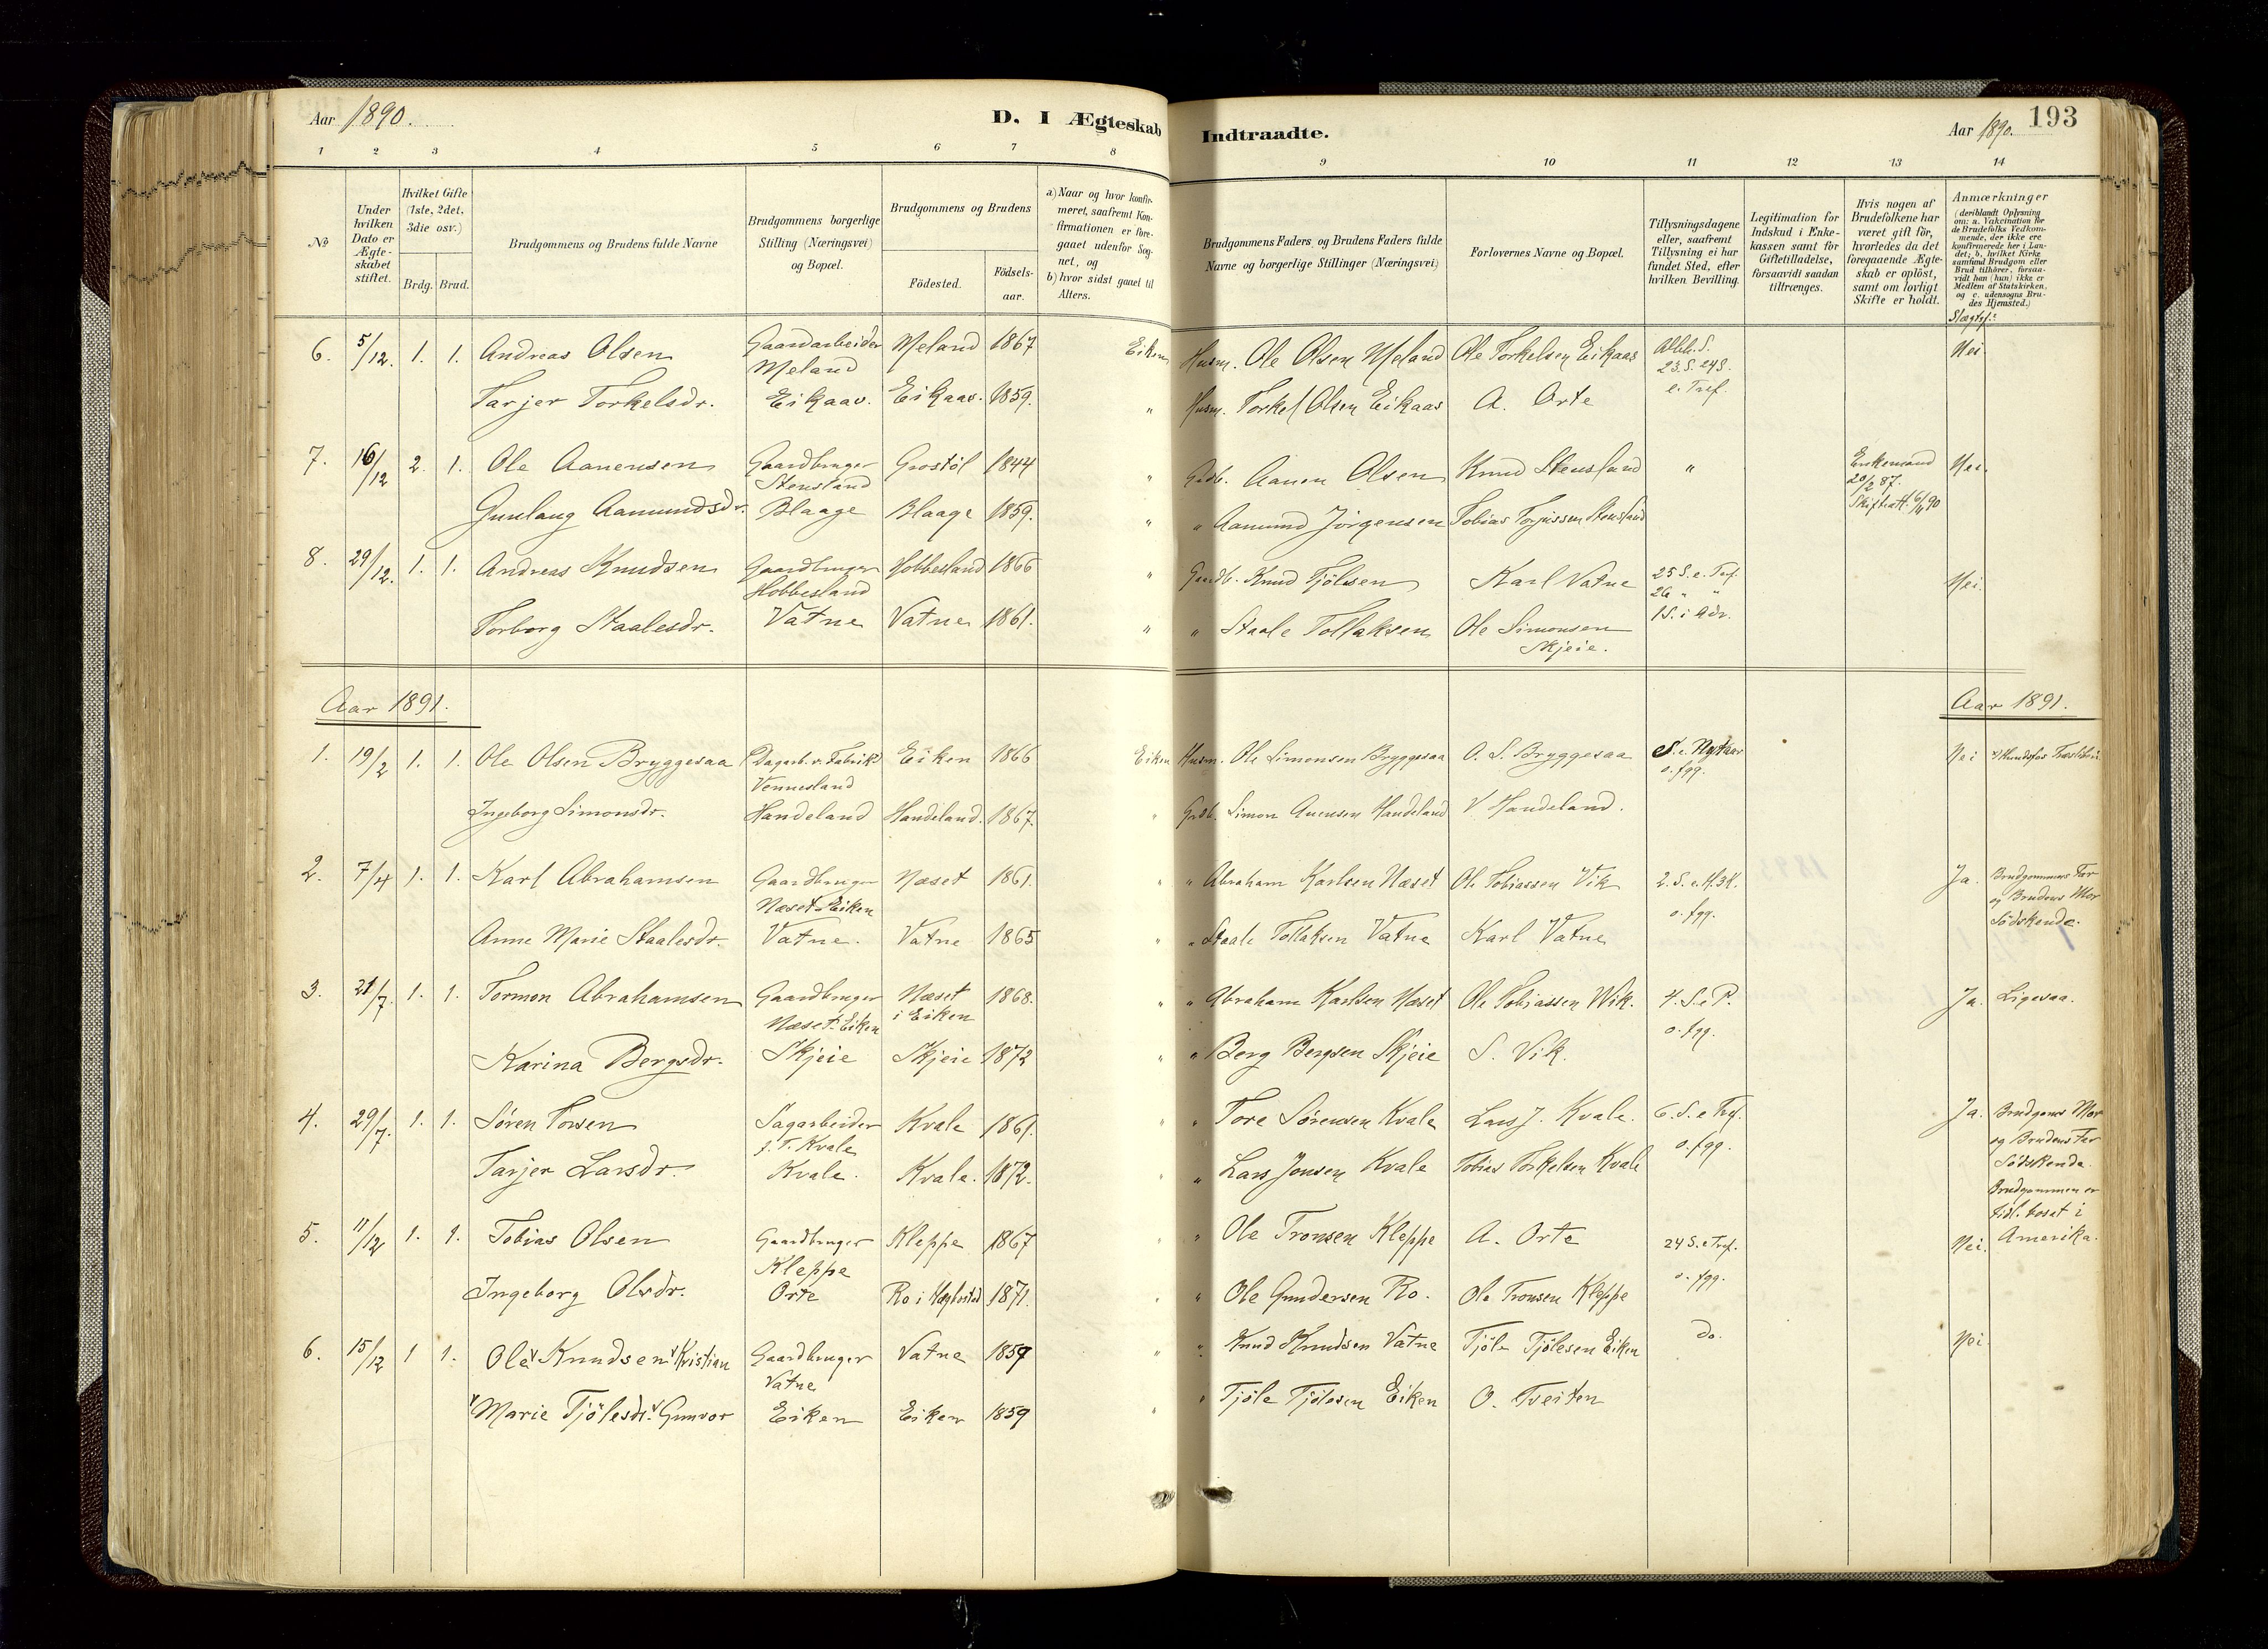 Aar 1890.
D. I Ægteskab
Indtraadte.
Aar 1890.
193
1 2 3 4 5 6 7 8 9 10 11 12 13 14
No
Under hvilken Dato er Ægteskabet stiftet.
Hvilket Gifte (1ste, 2det, 3die osv.)
Brdg. Brud.
Brudgommens og Brudens fulde Navne
Brudgommens borgerlige Stilling (Næringsvei) og Bopæl.
Brudgommens og Brudens
Fødested.
Fødselsaar.
a) Naar og hvor konfirmeret, saafremt Konfirmationen er foregaaet udenfor Sognet, og
b) hvor sidst gaaet til Alters.
Brudgommens Faders og Brudens Faders fulde Navne og borgerlige Stillinger (Næringsvei)
Forlovernes Navne og Bopæl.
Tillysningsdagene eller, saafremt Tillysning ei har fundet Sted, efter hvilken Bevilling.
Legitimation for Indskud i Enkekassen samt for Giftetilladelse, forsaavidt saadan tiltrænges.
Hvis nogen af Brudefolkene har været gift før, hvorledes da det foregaaende Ægteskab er opløst, samt om lovligt Skifte er holdt.
Anmærkninger
(deriblandt Oplysning om: a. Vakcination for de Brudefolks Vedkommende, der ikke ere konfirmerede her i Landet; b. hvilket Kirkesamfund Brudgom eller Brud tilhører, forsaavidt han (hun) ikke er Medlem af Statskirken, og c. udensogns Brudes Hjemsted.)
Slægtsf.:
6. 5/12. 1. 1. Andreas Olsen Gaardarbeider Meland Meland 1867 Eiken Husm. Ole Olsen Meland Ole Torkelsen Eikaas 23. S. 24 S. e. Tref. Nei
Tarjer Torkelsdr. Eikaas. Eikaas. 1859. " Husm. Torkel Olsen Eikaas A. Orte
7. 16/12 2. 1. Ole Aanensen Gaardbruger Stensland Grostøl 1844 " Grdb. Aanen Olsen Knud Stensland " Enkemand 20/2 87. Nei.
Gunlaug Aamundsdr. Blaage Blaage 1859. " " Aamund Jørgensen Tobias Torjussen Stensland
8. 29/12. 1. 1. Andreas Knudsen Gaardbruger Hobbesland Hobbesland 1866 " Gaardb. Knud Tjølsen Karl Vatne 25 S. e. Tref. 26 " " 1 S. i Adv. Nei.
Torborg Staalesdr. Vatne Vatne 1861. " " Staale Tollaksen Ole Simonsen Skjeie.
Aar 1891.
Aar 1891.
1. 19/2 1. 1. Ole Olsen Bryggesaa Dagarb. v. Fabrik Vennesland Eiken 1866 Eiken Husm. Ole Simonsen Bryggesaa O. S. Bryggesaa S. e. Nytaar o. fgg. Nei
Ingeborg Simonsdr. Handeland Handeland. 1867. " Grdb. Simon Anensen Handeland V. Handeland.
2. 7/4 1. 1. Karl Abrahamsen Gaardbruger Næset Eiken Næset 1861. " " Abraham Karlsen Næset Ole Tobiassen Vik 2. S. e. H. 3 K. o. fgg. Ja. Brudgommens Far og Brudens Mor Sødskende.
Anne Marie Staalesdr. Vatne. Vatne 1865 " " Staale Tollaksen Vatne Karl Vatne
3. 21/7. 1. 1. Tormon Abrahamsen Gaardbruger Næset Eiken Næset i Eiken 1868. " " Abraham Karlsen Næset Ole Tobiassen Wik. 4. S. e P. o. fgg. Ja. Ligesaa.
Karina Bergsdr. Skjeie Skjeie 1872 " " Berg Bergsen Skjeie S. Vik.
4. 29/7. 1. 1. Søren Torsen Sagarbeider f. T. Kvale Kvale 1861. " " Tore Sørensen Kvale Lars J. Kvale. 6. S. e Tref. o. fgg. Ja. Brudgoms Mor og Brudens Far Sødskende. Brudgommen er tidl. bosat i Amerika.
Tarjer Larsdr. Kvale. Kvale. 1872. " " Lars Jonsen Kvale Tobias Torkelsen Kvale
5. 11/12 1. 1. Tobias Olsen Gaardbruger Kleppe Kleppe 1867 " " Ole Tronsen Kleppe A. Orte 24 S. e Tref. o. fgg. Nei.
Ingeborg Olsdr. Orte Ro i Hægbostad 1871. " " Ole Gundersen Ro. Ole Tronsen Kleppe
6. 15/12 1 1. Ole Knudsen Kristian Gaardbruger Vatne Vatne 1859 " " Knud Knudsen Vatne Tjøle Tjølesen Eiken do. Nei.
Marie Tjølesdr. Gunvor Eiken Eiken 1859 " " Tjøle Tjølesen Eiken O. Tveiten